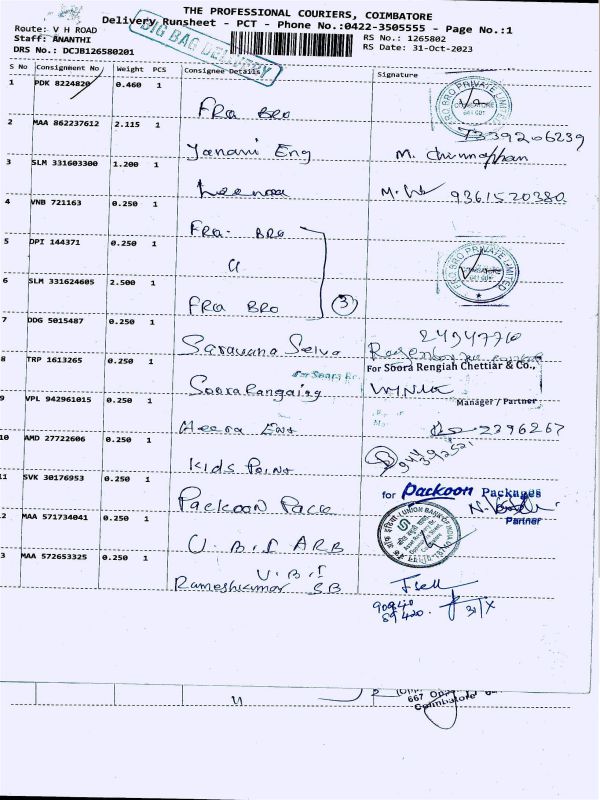 THE PROFESSIONAL COURIERS, COIMBATORE
Delivery Runsheet - PCT - Phone No.:0422-3505555 - Page No.:1
Route: V H ROAD
Staff: ANANTHI
DRS No.: DCJB126580201
BIG BAG DELIVERY
RS No.: 1265802
RS Date: 31-Oct-2023
S No Consignment No Weight PCS Consignee Details Signature
1 PDK 8224820 0.460 1 FRA BRO
2 MAA 862237612 2.115 1 Janani Eng 7339206239
3 SLM 331603300 1.200 1 9361520380
4 VNB 721163 0.250 1 FRA- BRO
5 DPI 144371 0.250 1 u
6 SLM 331624605 2.500 1 FRA BRO 3
FRO BRO PRIVATE LIMITED
7 DDG 5015487 0.250 1 Saravana Selva
8 TRP 1613265 0.250 1
For Soora Rengiah Chettiar & Co.,
Manager / Partner
9 VPL 942961015 0.250 1 Heera Ent 2396267
10 AMD 27722606 0.250 1 Kids Point
11 SVK 30176953 0.250 1 Packoon Pack
for Packoon Packages
Partner
12 MAA 571734041 0.250 1 U.B.I ARB
UNION BANK OF INDIA
13 MAA 572653325 0.250 1 U.B.I
Rameshkumar SB
u
Coimbatore